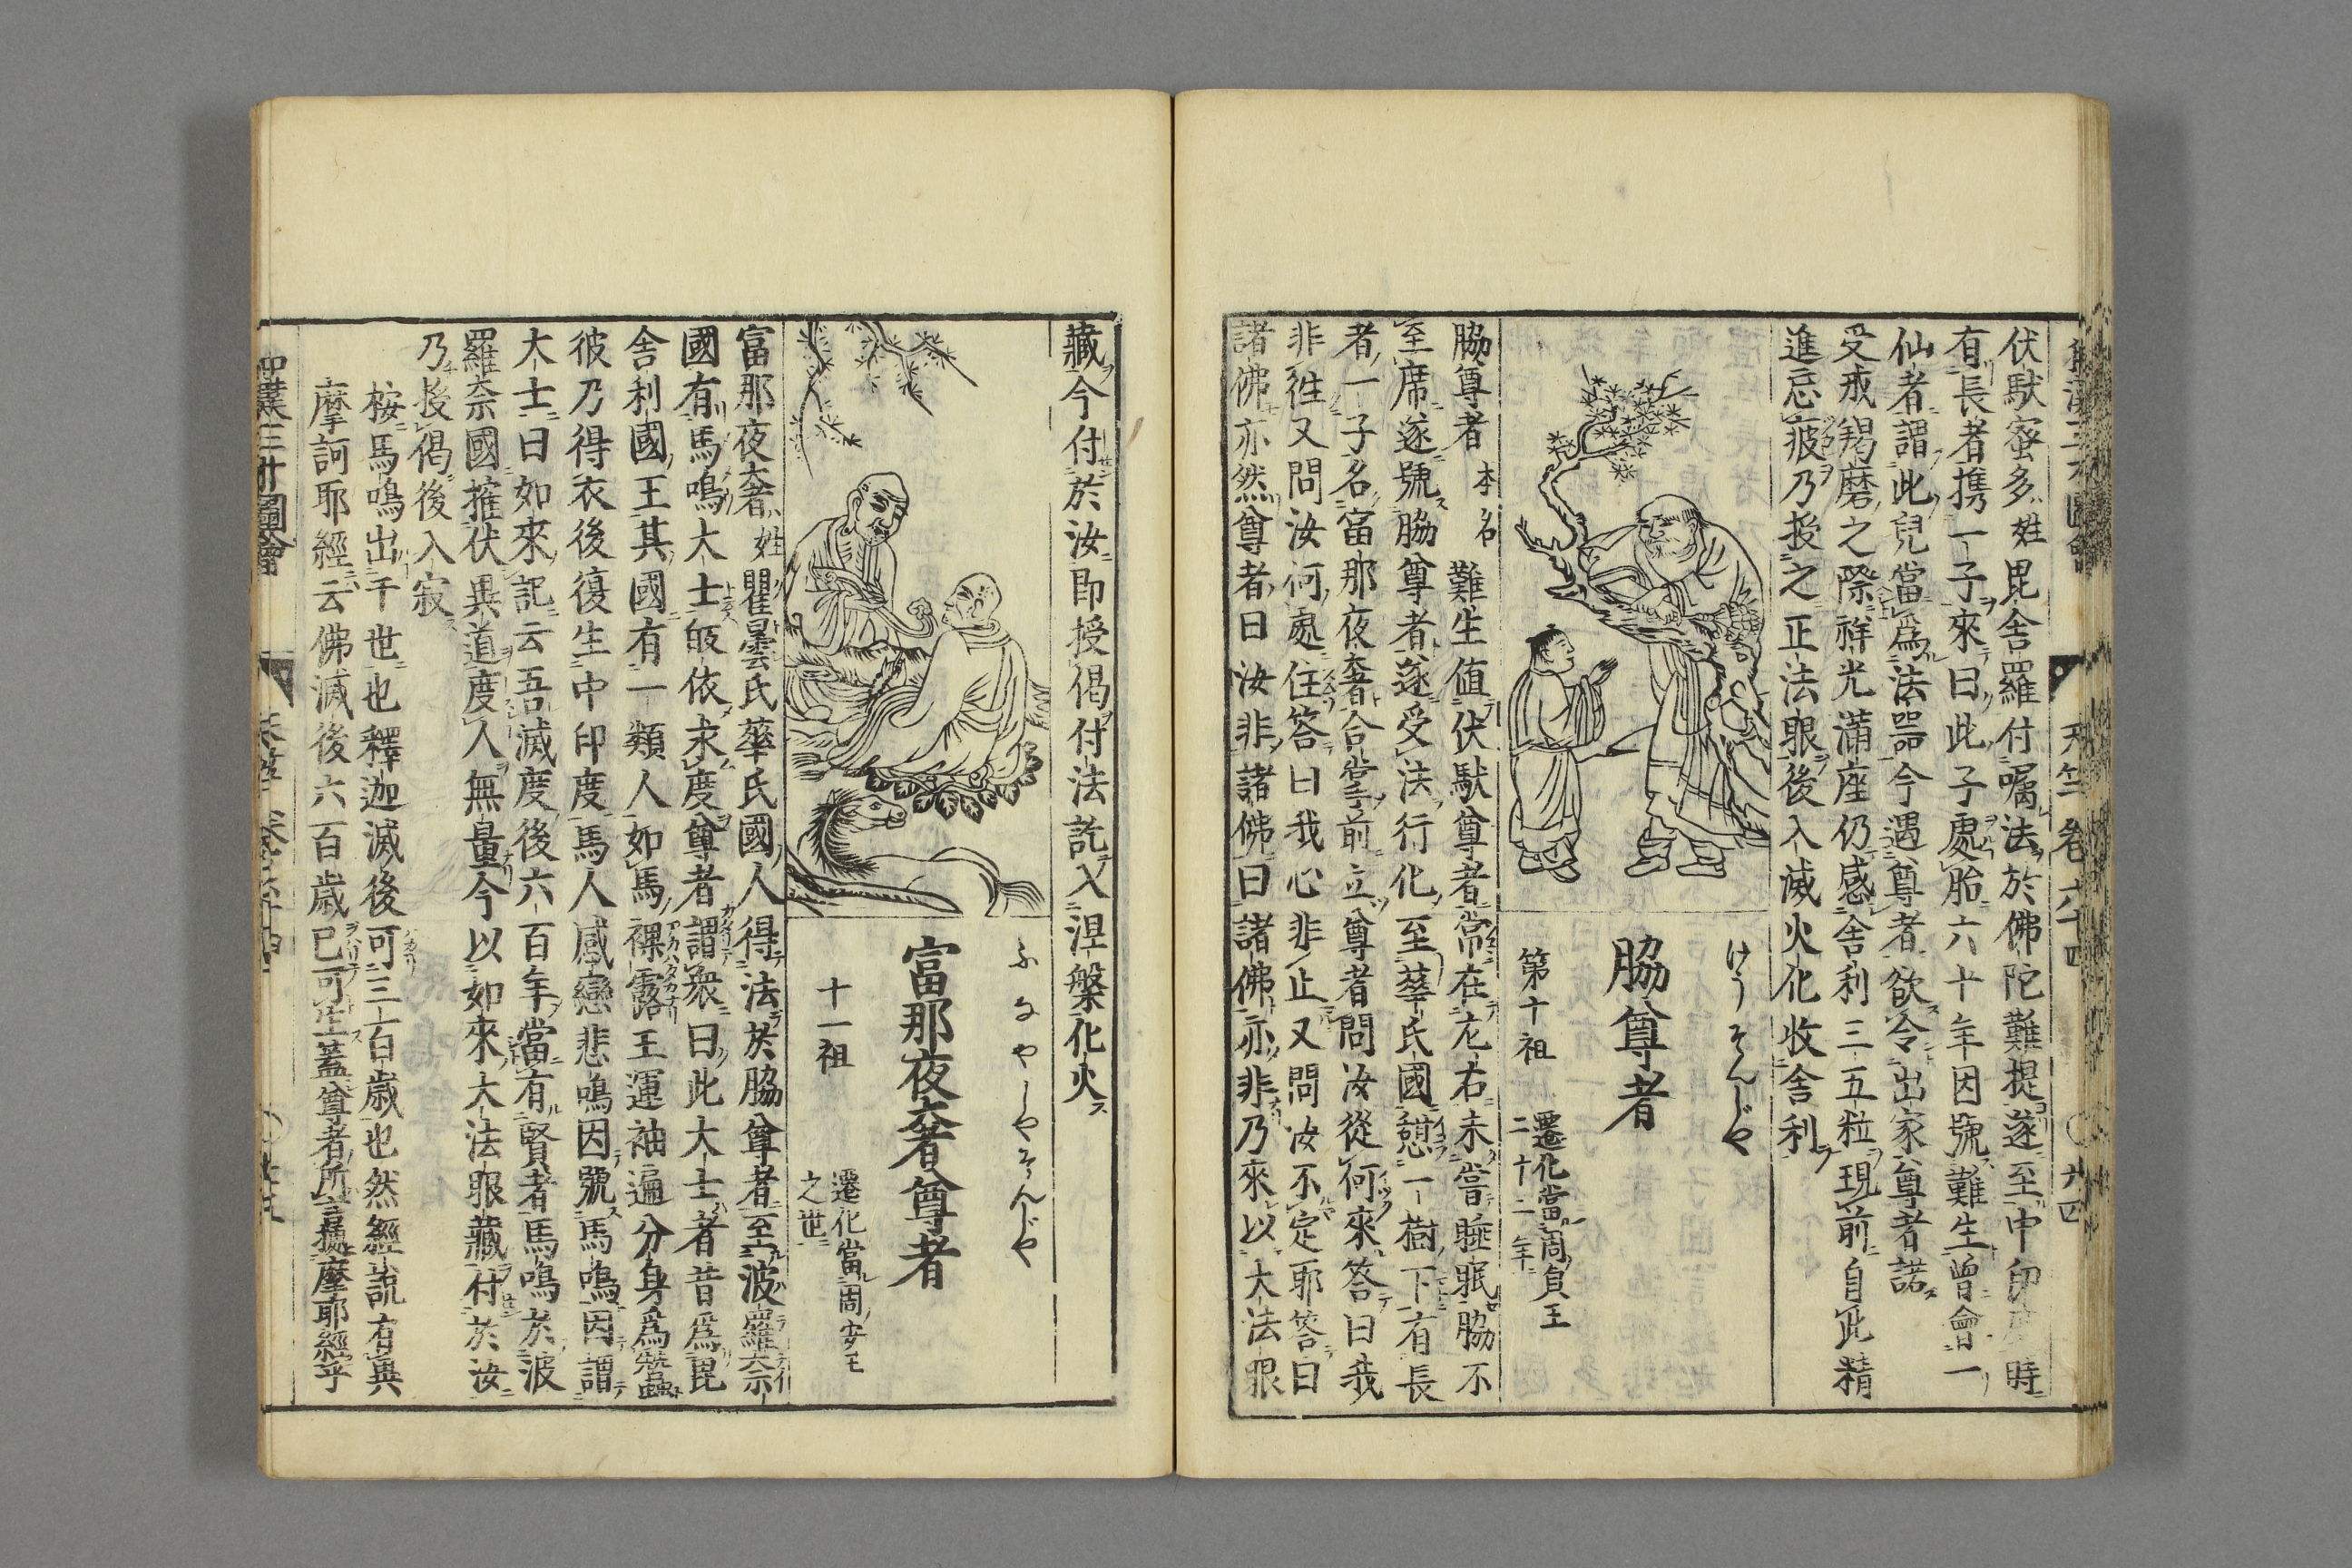 伏馱蜜多姓毘舍羅付囑法於佛陀難提遂至中印度時
有長者携一子來曰此子處胎六十年因號難生曾會一
仙者謂此兒當爲法器今遇尊者欲令出家尊者諾
受戒羯磨之際祥光滿座仍感舍利三五粒現前自此精
進忘疲乃授之正法眼後入滅火化收舍利
けうそんじや
脇尊者
第十祖
遷化當周貞王
二十二年
脇尊者本名難生値伏馱尊者常在左右未嘗睡眠脇不
至席遂號脇尊者遂受法行化至華氏國憩一樹下有長
者一子名富那夜奢合掌前立尊者問汝從何來答曰我
非徃又問汝何處住答曰我心非止又問汝不定耶答曰
諸佛亦然尊者曰汝非諸佛曰諸佛亦非乃來以大法眼
天竺 卷六十四
六四
藏今付於汝即授偈付法訖入涅槃化火
ふなやしやそんじや
富那夜奢尊者
十一祖
遷化當周安王
之世
富那夜奢姓瞿曇氏華氏國人得法於脇尊者至波羅奈
國有馬鳴大士皈依求度尊者謂衆曰此大士者昔爲毘
舍利國王其國有一類人如馬裸露王運袖遍分身爲蠶
彼乃得衣後復生中印度馬人感戀悲鳴因號馬鳴因謂
大士曰如來記云吾滅度後六百年當有賢者馬鳴於波
羅奈國摧伏異道度人無量今以如來大法眼藏付於汝
乃授偈後入寂
桉馬鳴出于世也釋迦滅後可三百歳也然經説有異
摩訶耶經云佛滅後六百歳已可生蓋尊者所言據摩耶經乎